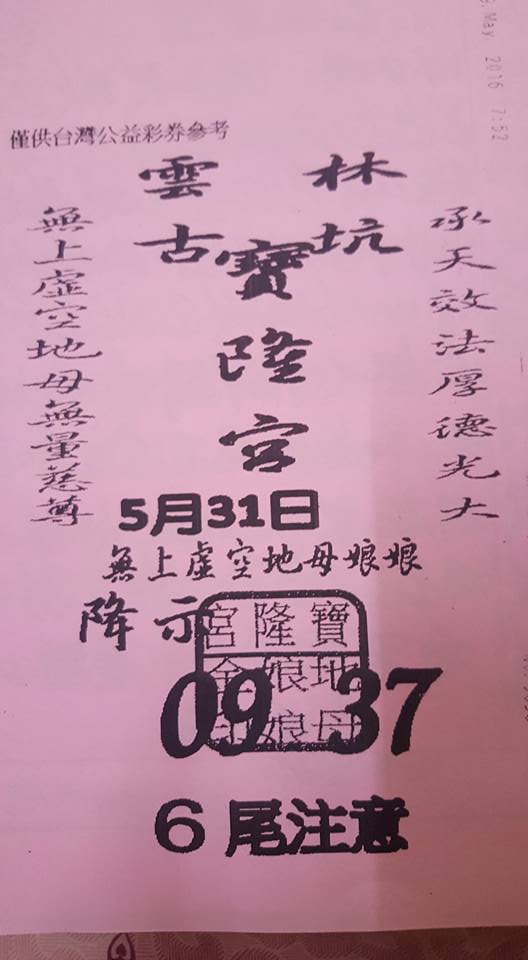 May 2016 7:52
僅供台灣公益彩券參考
雲林
古坑
寶隆宮
承天效法厚德光大
無上虛空地母無量慈尊
5月31日
無上虛空地母娘娘
降示
寶隆宮
地母
娘娘
09 37
6尾注意